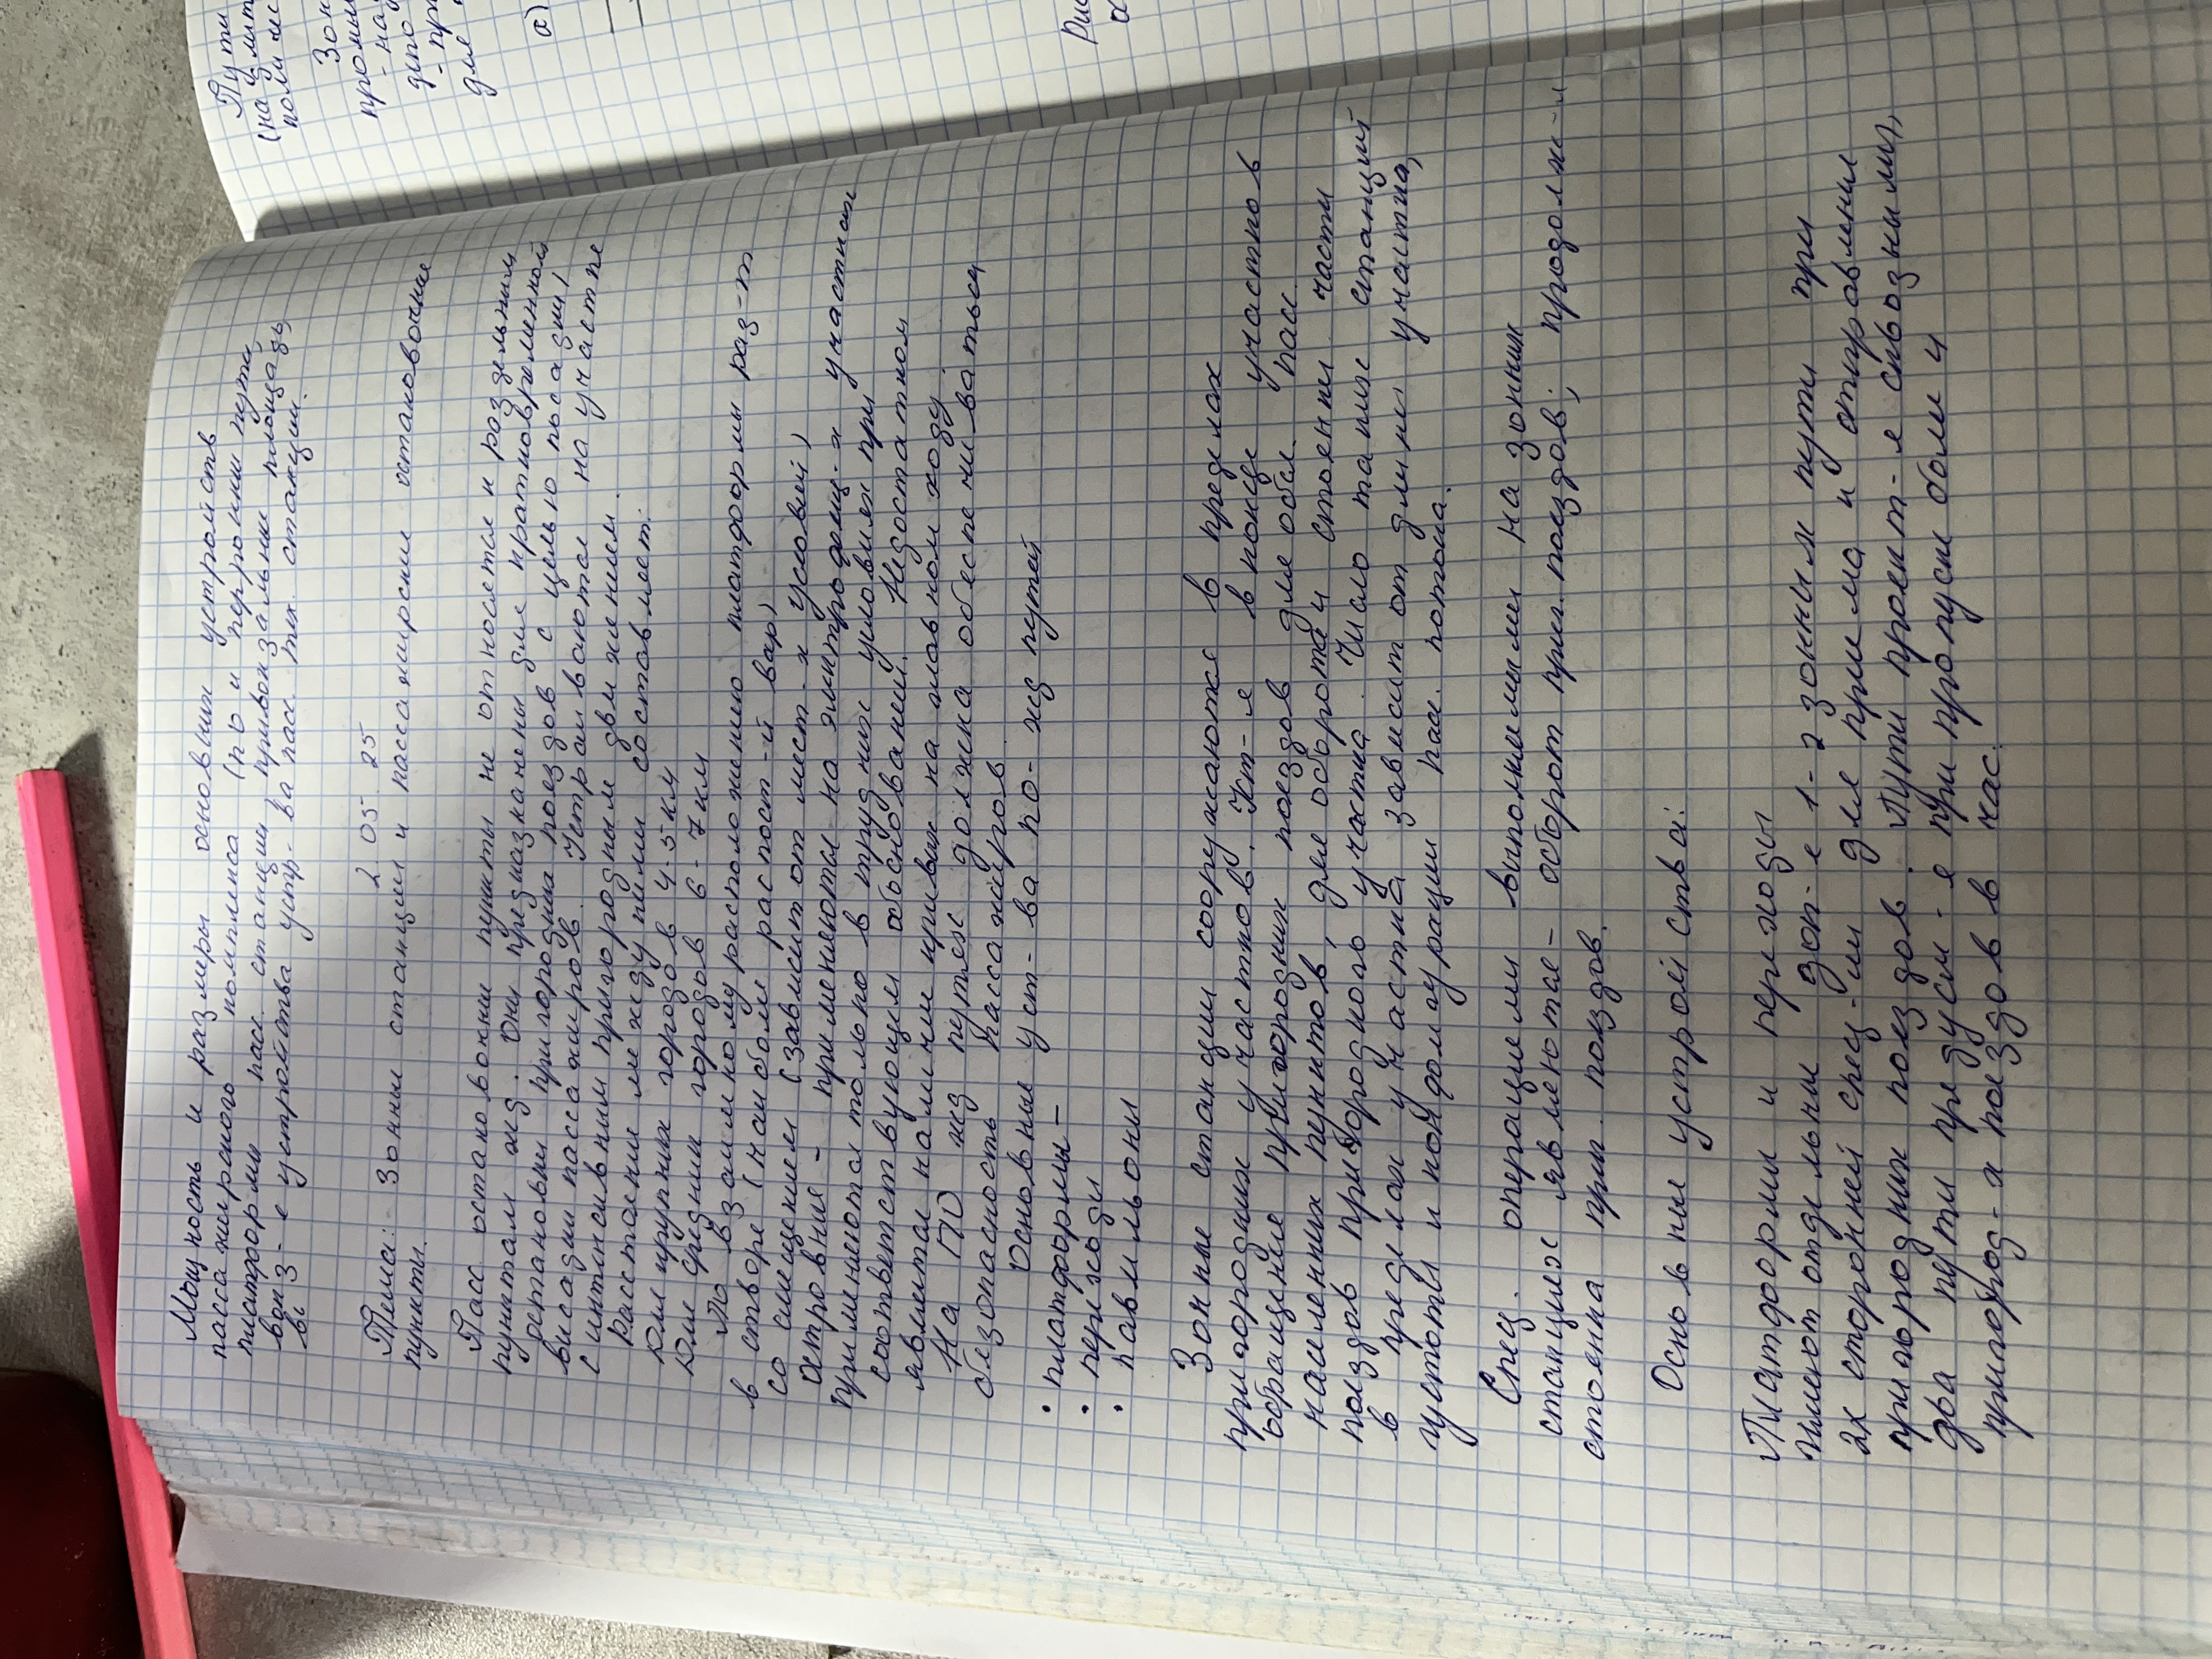 Мощность и размеры основных устройств
пассажирского комплекса (по и перронных пути,
платформы пасс станции привокзальные площадь,
вокз-е устройства устр-ва пасс тех. станции.
вы
2 05 25
Тема: Зонные станции и пассажирские остановочные
пункты.
Пасс остановочные пункты не относятся к раздельным
пунктам жд. Они предназначены для кратковременной
остановки пригородных поездов с целью посадки/
высадки пассажиров. Устраиваются на участке
с интенсивным пригородным движением.
Расстояние между ними составляет:
для крупных городов 4-5км
для средних городов 6-7км
По взаимному расположению платформы раз-т
в створе (наиболее распост-й вар)
со смещением (зависит от мест-х условий)
островные - применяются на электрофиц-х участках
применяются только в трудных условиях при
соответствующем обосновании. Недостатком
является наличие кривых на главном ходу.
На ПО жд путях должна обеспечиваться
безопасность пассажиров.
Основные уст-ва по- жд путей
• платформы -
• переходы
• павильоны
Зонные станции сооружаются в пределах
пригородных участков. Уст-я в конце участков
обращения пригородных поездов для обсл. пасс.
населенных пунктов, для оборота и стоянки части
поездов пригородного участка. Число таких станций
в пределах участка зависит от длины участка,
густоты и конфигурации пасс. потока.
Спец. операциями выполнимыми на зонных
станциях являются - оборот приг. поездов; продолж-я
стоянка приг. поездов.
Основные устройства:
Платформы и переходы
Имеют отдельные зон-е 1-2 зонным пути при
2х сторонней спец-ии для приема и отправления
пригородных поездов. Пути проект-я сквозными,
два пути предусм-я при пропуске более 4
пригород-х поездов в час.
Пути
Зон
депо
для
а)
Рис